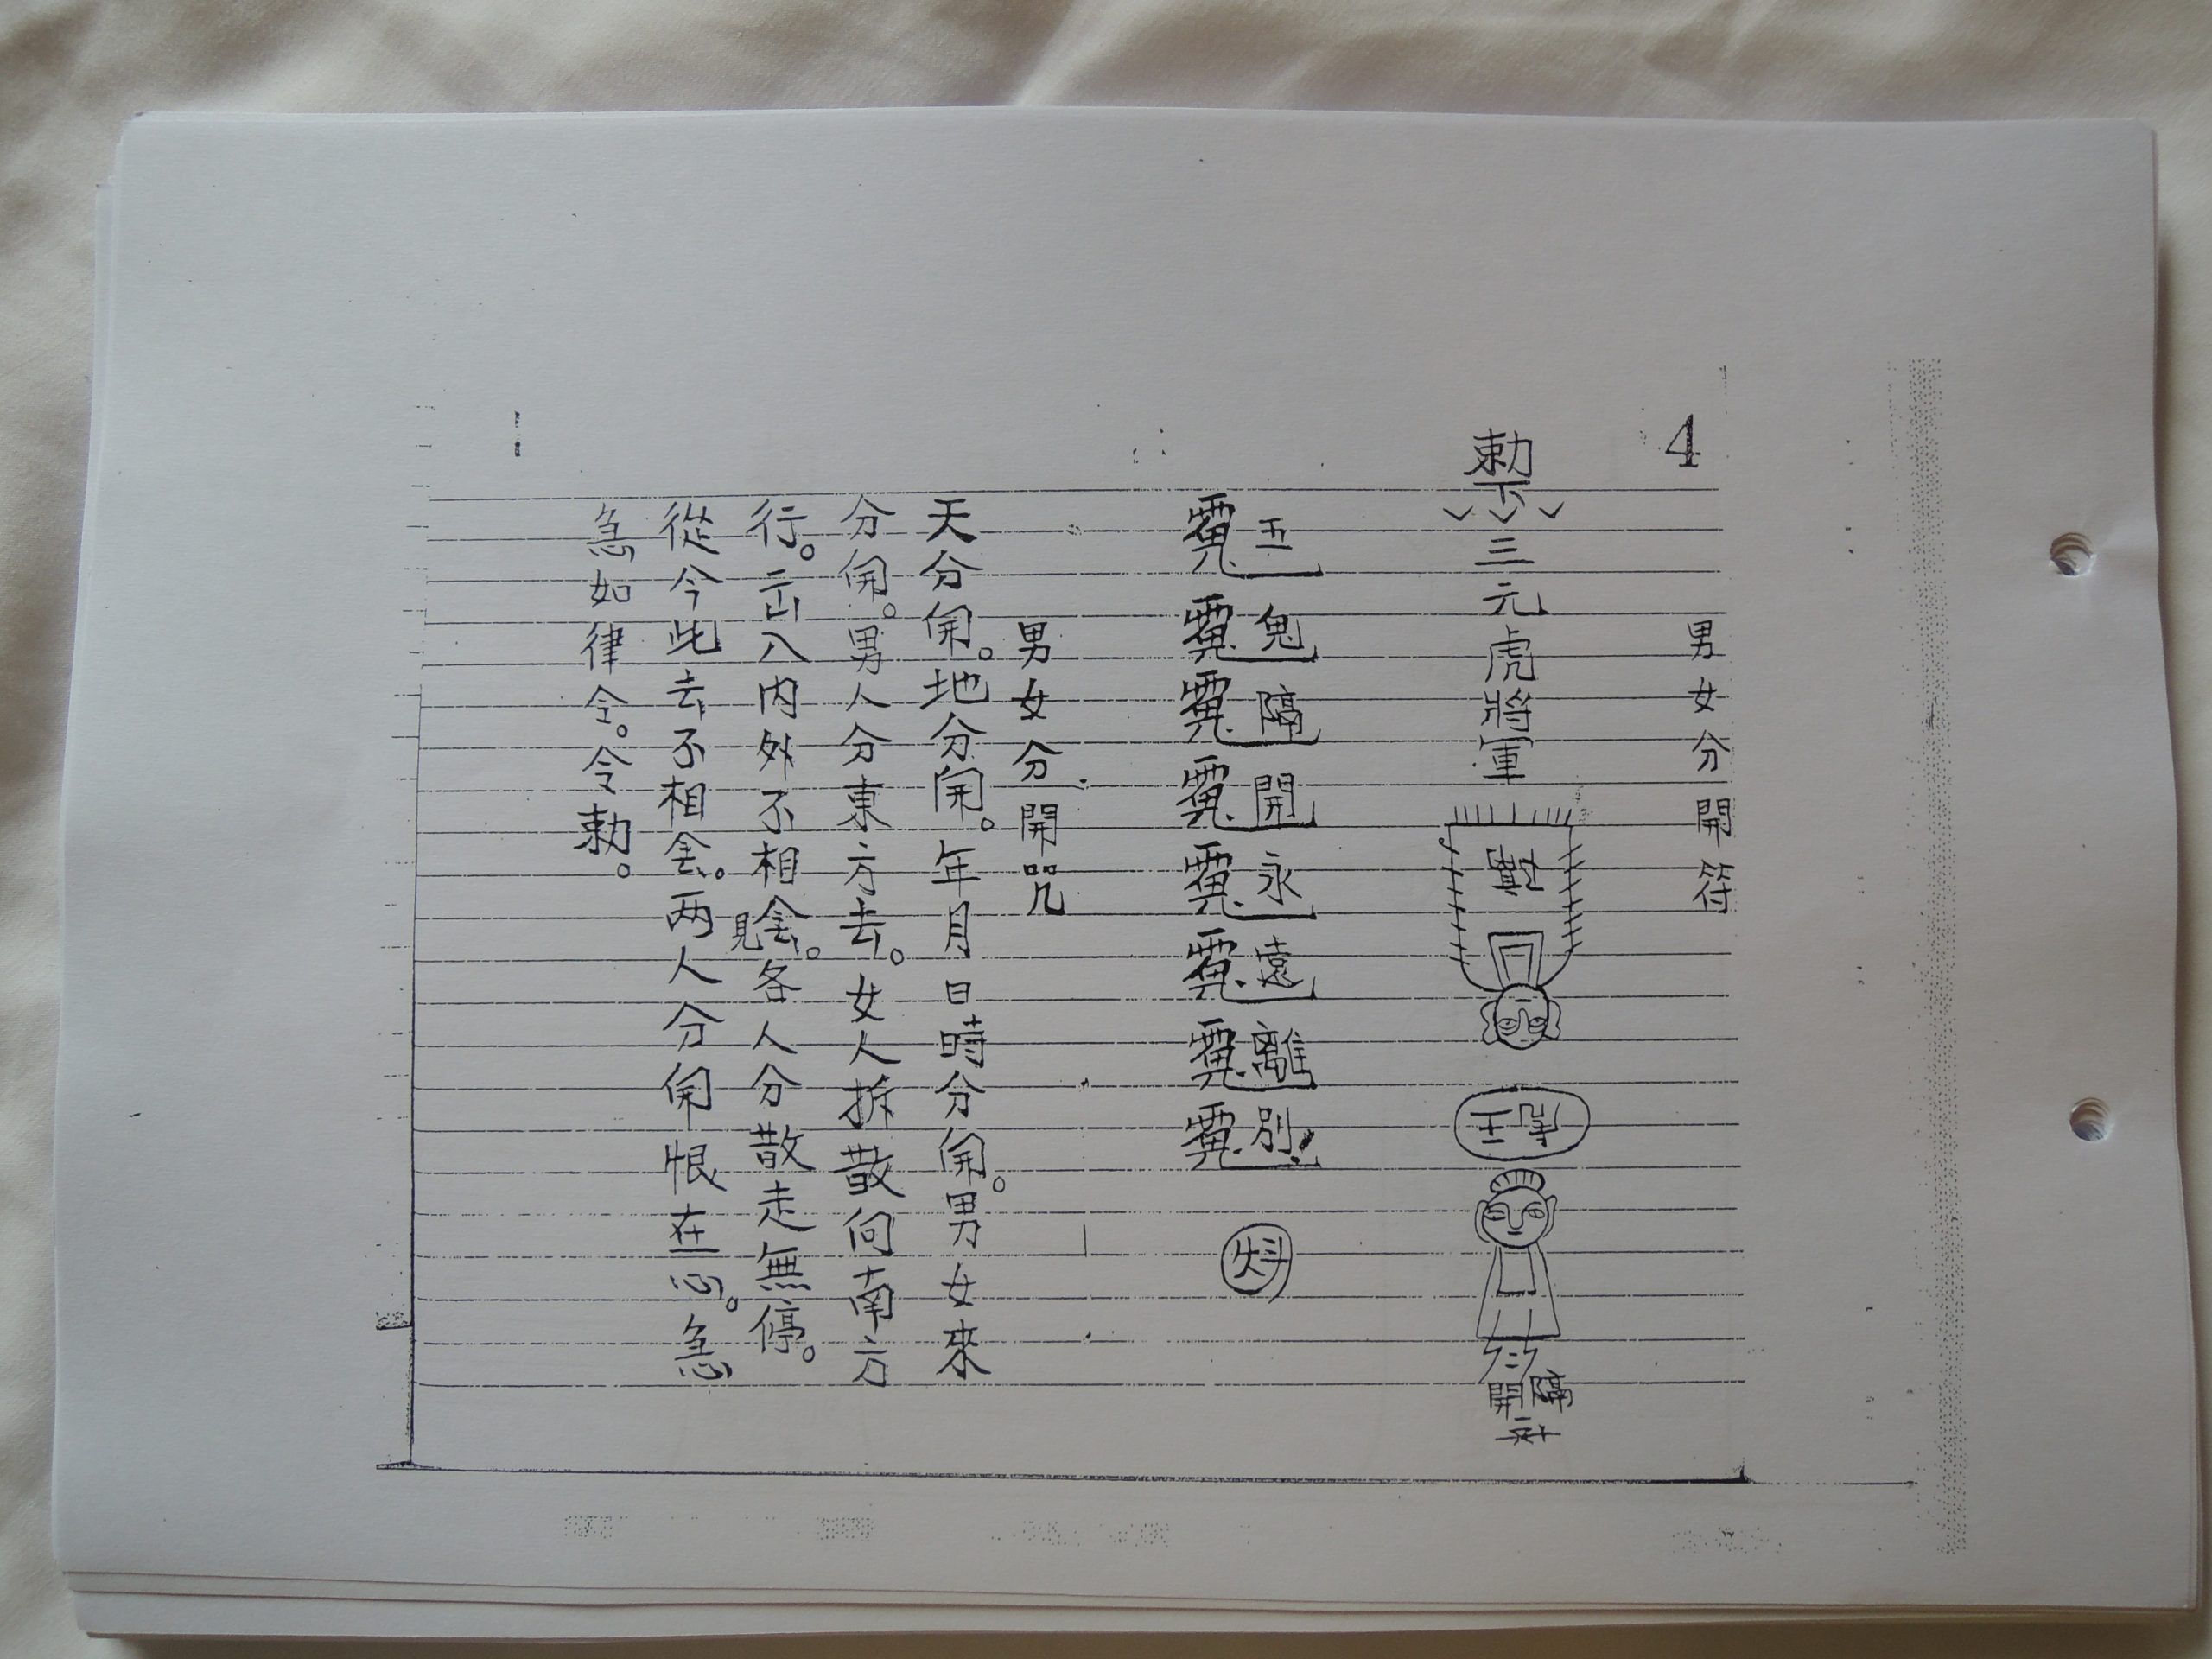 4
男女分開符
勅下三元虎將軍
隔開
五鬼隔開永遠離別
男女分開咒
天分開。地分開。年月日時分開。男女來
分開。男人分東方去。女人拆散向南方
行。出入內外不相会。見各人分散走無停。
從今此去不相会。两人分開恨在心。急
急如律令。令勅。